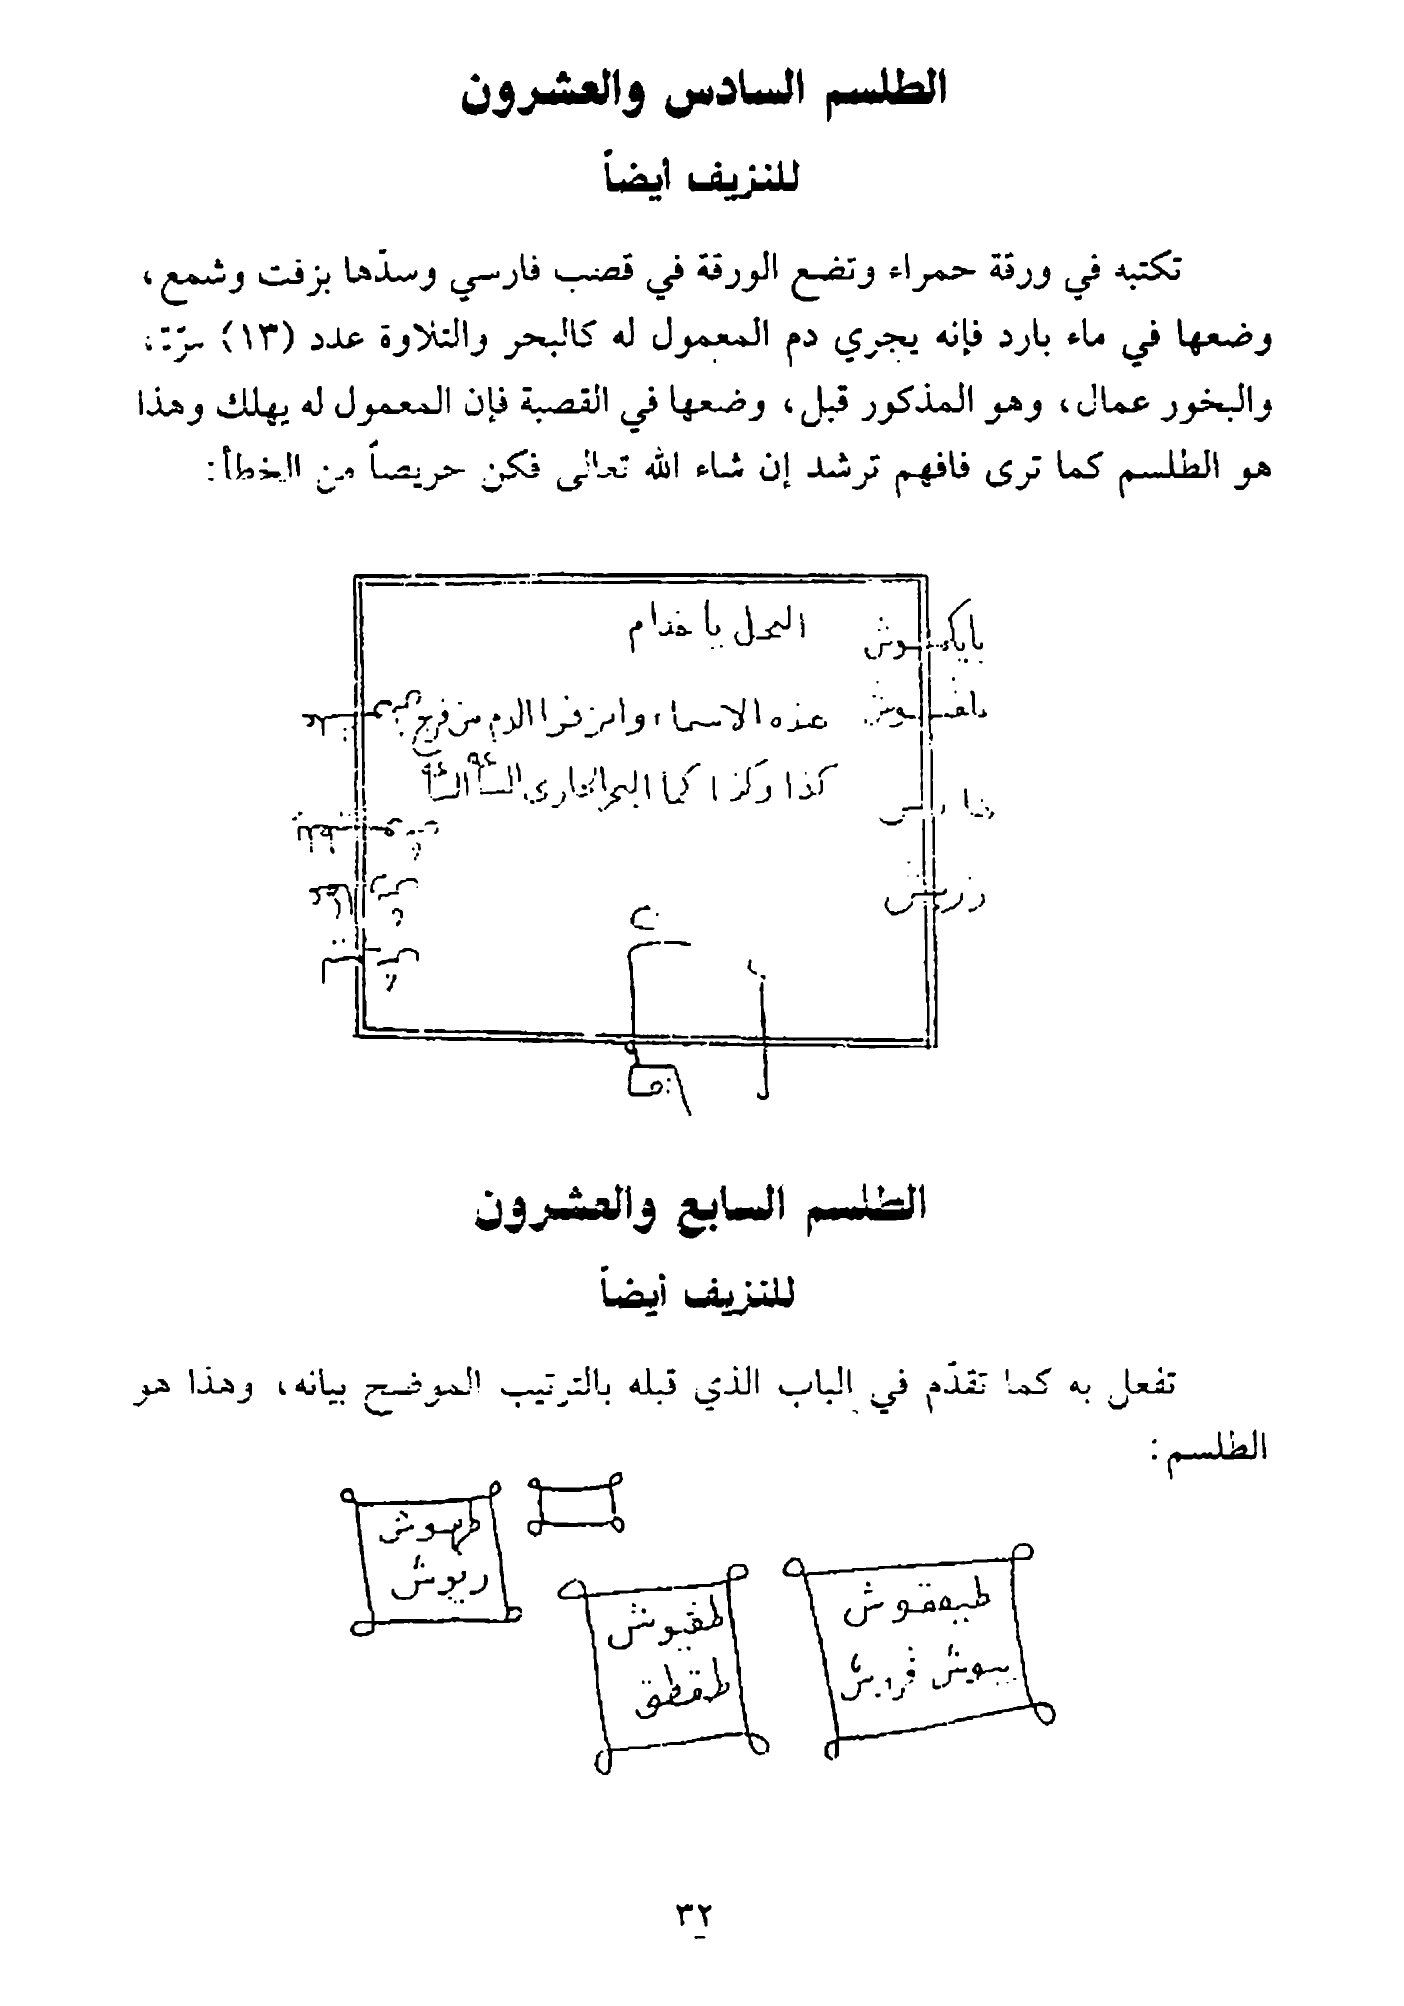 الطلسم السادس والعشرون
للنزيف أيضاً
تكتبه في ورقة حمراء وتضع الورقة في قصب فارسي وسدّها بزفت وشمع،
وضعها في ماء بارد فإنه يجري دم المعمول له كالبحر والتلاوة عدد (١٣) مرّة،
والبخور عمال، وهو المذكور قبل، وضعها في القصبة فإن المعمول له يهلك وهذا
هو الطلسم كما ترى فافهم ترشد إن شاء الله تعالى فكن حريصاً من الخطأ:
العجل يا خدام
هذه الاسماء وانزفوا الدم من فرج
كذا وكذا كما البحر الجاري
الطلسم السابع والعشرون
للنزيف أيضاً
تفعل به كما تقدّم في الباب الذي قبله بالترتيب الموضح بيانه، وهذا هو
الطلسم:
طهوش
ريوش
طفيوش
طقطق
طيهقوش
٣٢